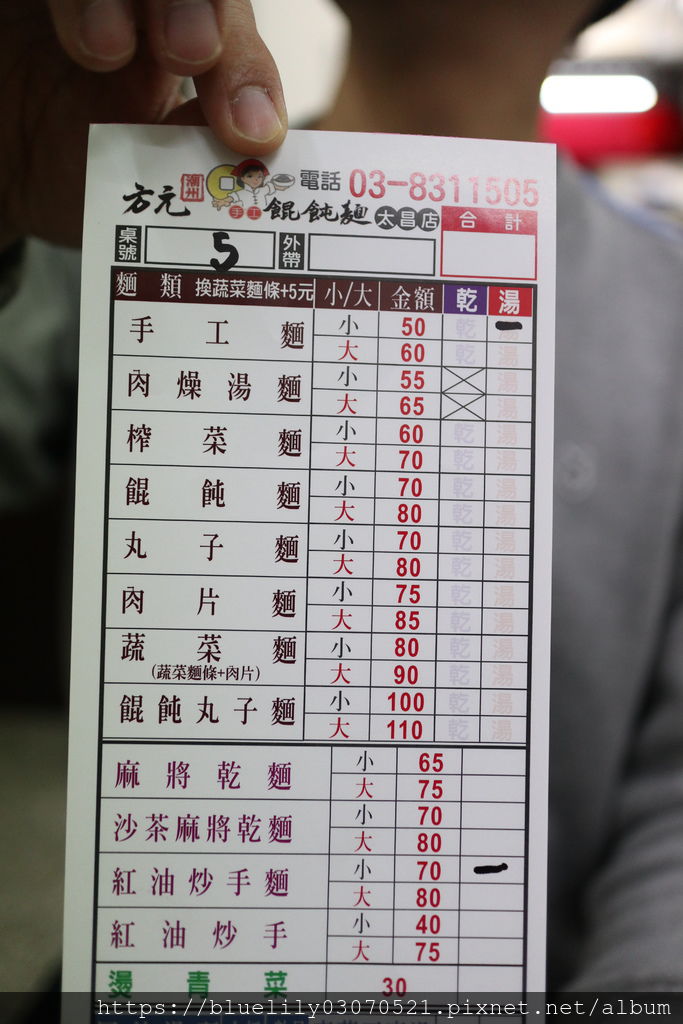 潮州 電話 03-8311505
方元 手工 餛飩麵 太昌店 合計
桌號 5 外帶
麵類 換蔬菜麵條+5元 小/大 金額 乾 湯
手工麵 小 50 乾 湯
大 60 乾 湯
肉燥湯麵 小 55 湯
大 65 湯
榨菜麵 小 60 乾 湯
大 70 乾 湯
餛飩麵 小 70 乾 湯
大 80 乾 湯
丸子麵 小 70 乾 湯
大 80 乾 湯
肉片麵 小 75 乾 湯
大 85 乾 湯
蔬菜麵 小 80 乾 湯
(蔬菜麵條+肉片) 大 90 乾 湯
餛飩丸子麵 小 100 乾 湯
大 110 乾 湯
麻將乾麵 小 65
大 75
沙茶麻將乾麵 小 70
大 80
紅油炒手麵 小 70
大 80
紅油炒手 小 40
大 75
燙青菜 30
https://bluelily03070521.pixnet.net/album